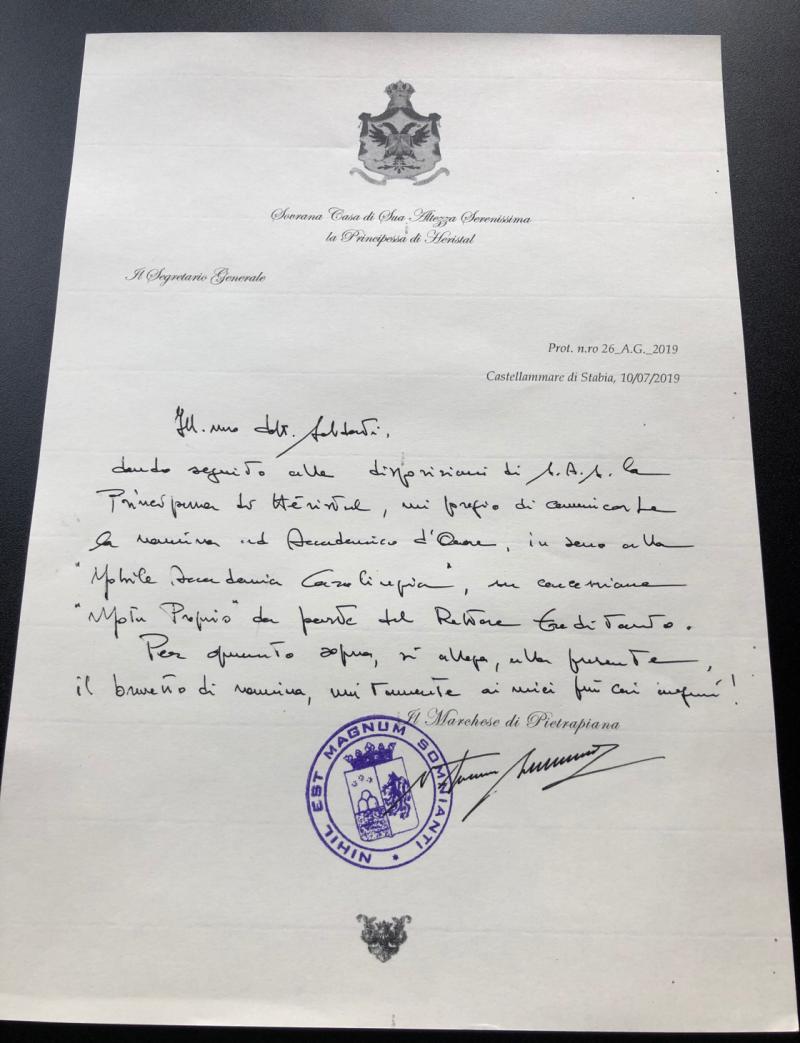 Sovrana Casa di Sua Altezza Serenissima
la Principessa di Heristal
Il Segretario Generale
Prot. n.ro 26_A.G._2019
Castellammare di Stabia, 10/07/2019
Ill.mo dott.
dando seguito alle disposizioni di S.A.S. la
Principessa di Héristal, mi pregio di comunicarLe
la nomina ad Accademico d'Onore, in seno alla
"Nobile Accademia Carolingia", su concessione
"Motu Proprio" da parte del Rettore Ereditario.
Per quanto sopra, si allega, alla presente,
il brevetto di nomina, unitamente ai miei più cari !
Il Marchese di Pietrapiana
NIHIL EST MAGNUM SOMNIANTI